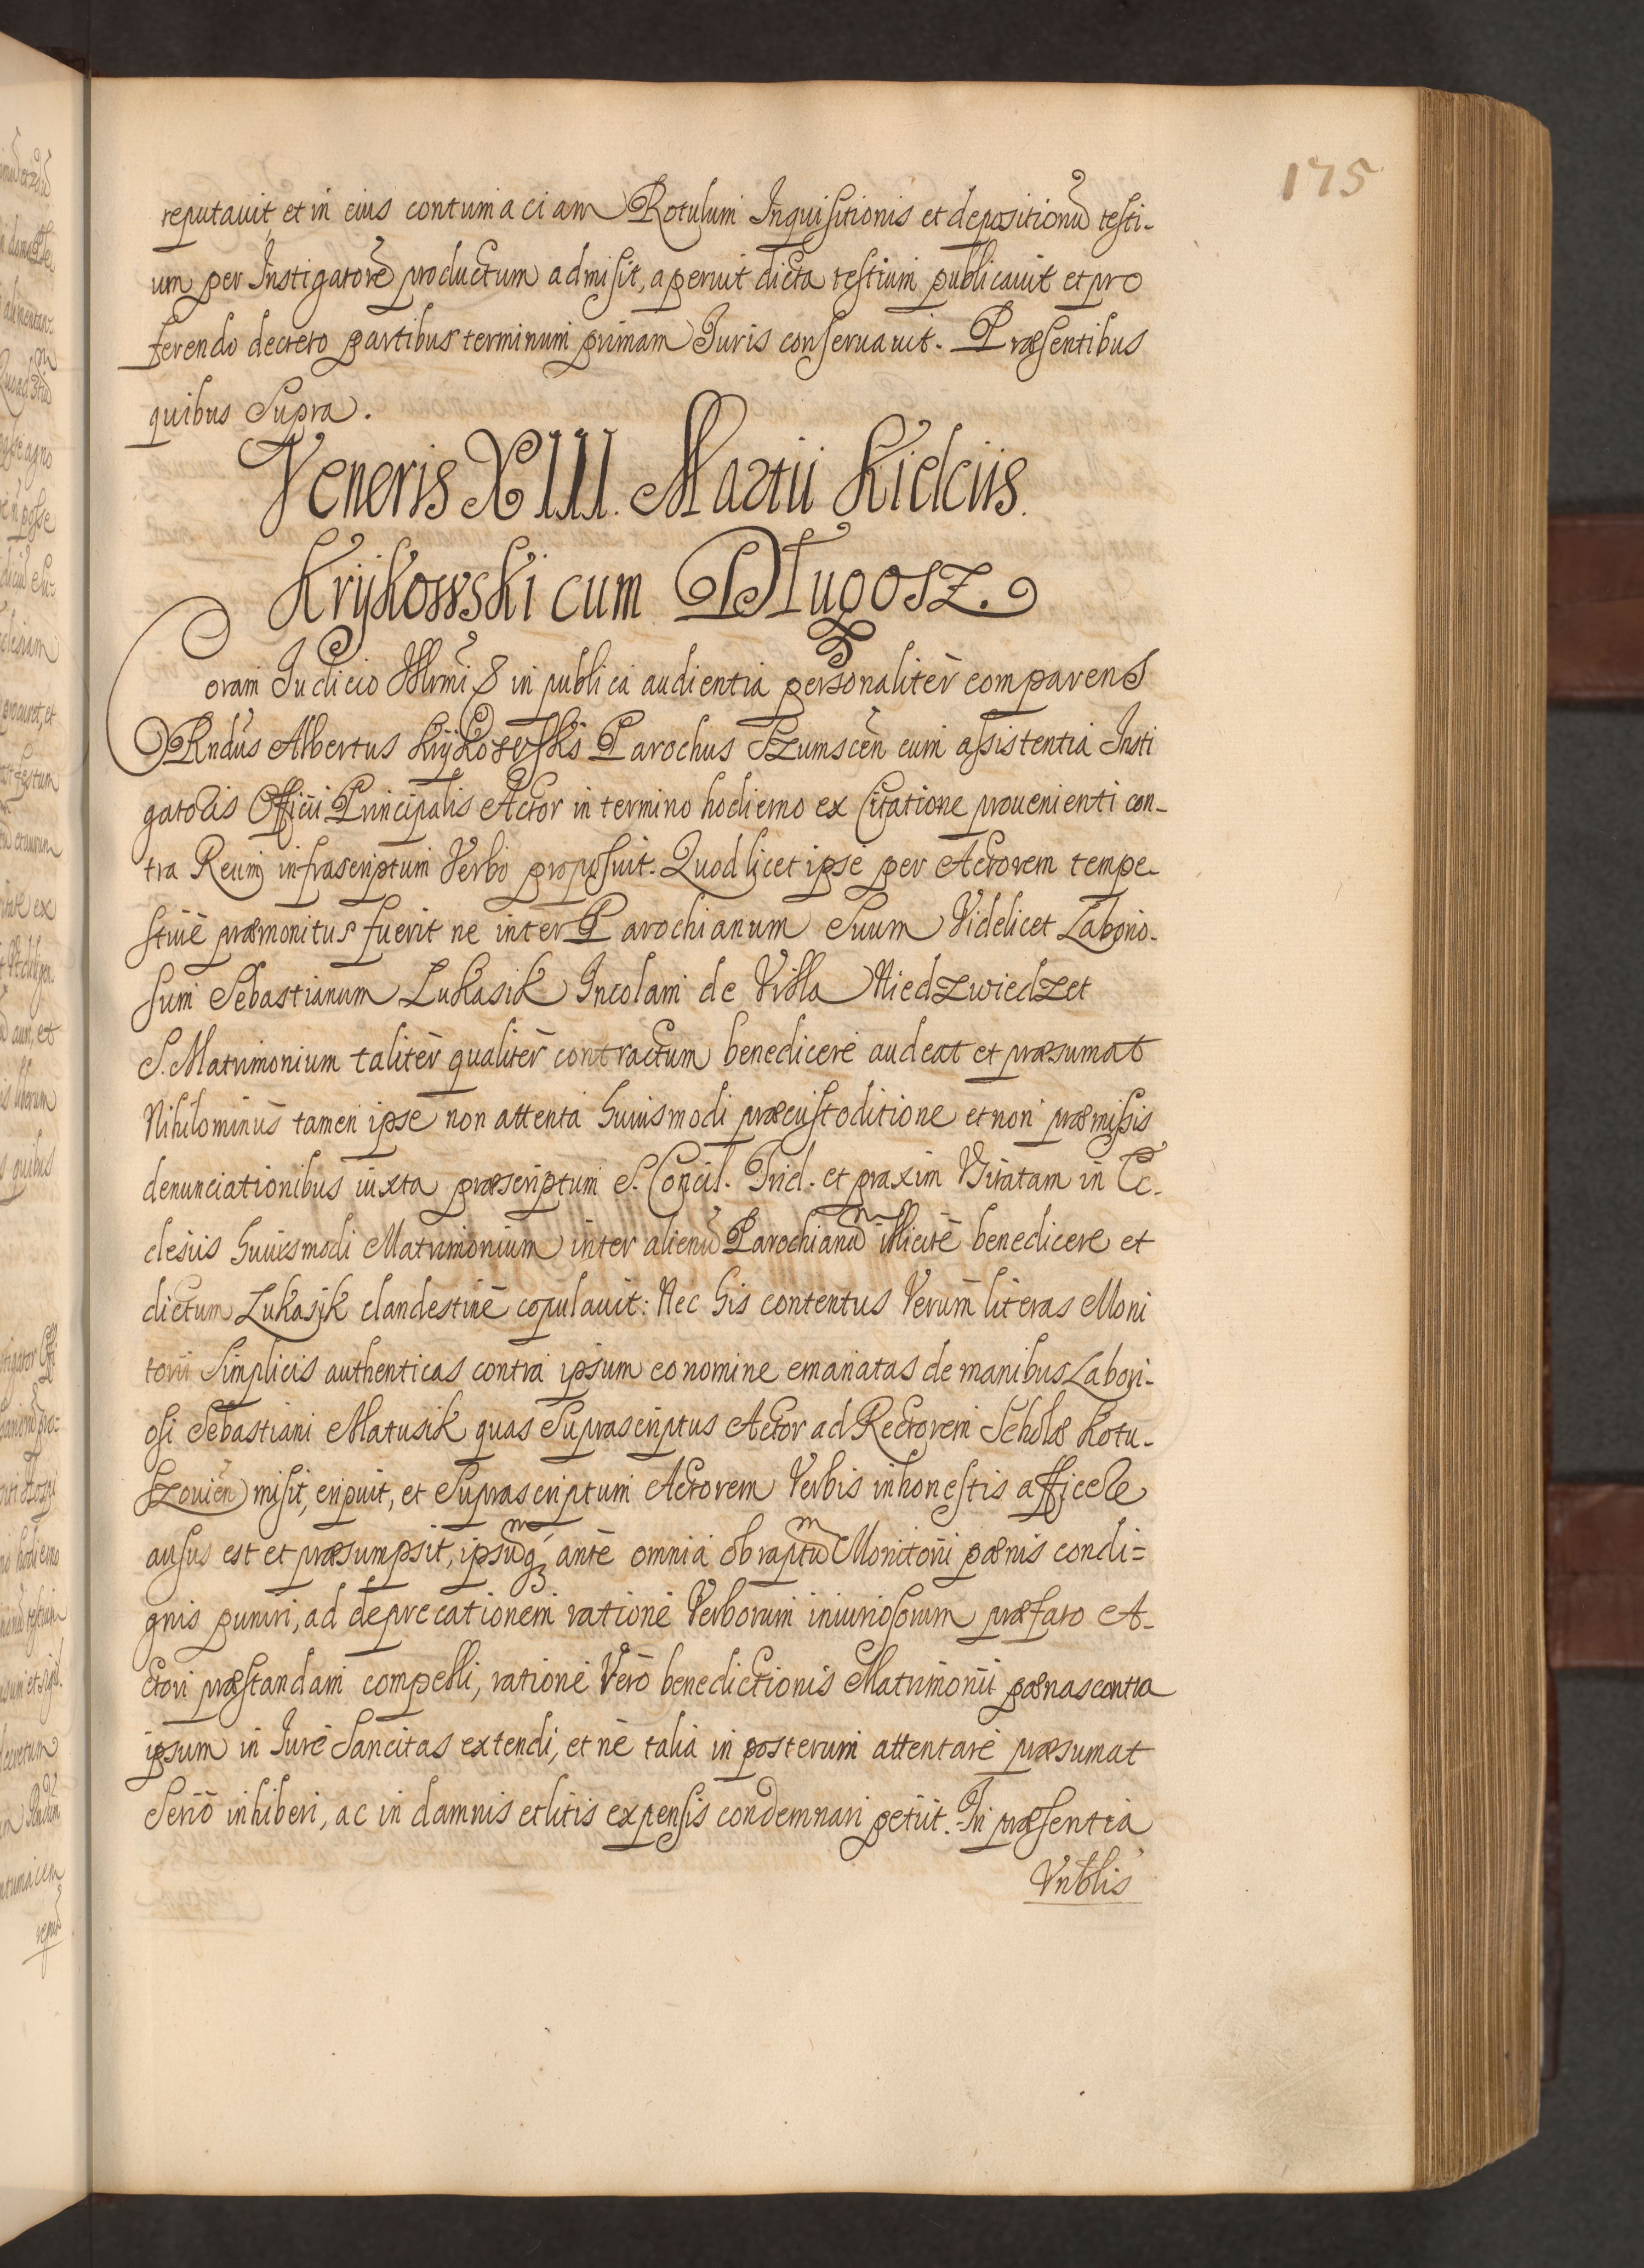 175
reputauit, et in eius contumaciam Rotulum Inquisitionis et depositionũ testi-
um per Instigatorẽ productum admisit, aperuit dicta testium publicauit et pro
ferendo decreto partibus terminum primam Iuris conseruauit. Præsentibus
quibus Supra.
Veneris XIII. Martii Kielciis.
Krijkowski cum Długosz.
Coram Iudicio Illrmi &c in publica audientia personaliter comparens
Rndus Albertus Krijkowski Parochus Szumscen cum assistentia Insti
gatoris Officii Principalis Actor in termino hodierno ex Citatione prouenienti con-
tra Reum infrascriptum Verbo proposuit. Quod licet ipse per Actorem tempe-
stiuè præmonitus fuerit ne inter Parochianum Suum Videlicet Laborio-
sum Sebastianum Lukasik Incolam de Villa Niedzwiedz et
S. Matrimonium taliter qualiter contractum benedicere audeat et præsumat
Nihilominus tamen ipse non attenta huiusmodi præcustoditione et non præmissis
denunciationibus iuxta præscriptum S. Concil. Trid. et praxim Vsitatam in Ec-
clesiis huiusmodi Matrimonium inter alienũ Parochianũ illicitè benedicere et
dictum Lukasik clandestinè copulauit: Nec his contentus Verùm literas Moni
torii Simplicis authenticas contra ipsum eo nomine emanatas de manibus Labori-
osi Sebastiani Matusik quas Suprascriptus Actor ad Rectorem Scholæ Kotu-
szouien misit, eripuit, et Suprascriptum Actorem Verbis inhonestis afficere
ausus est et præsumpsit, ipsũq3 ante omnia ob raptũ Monitorii pœnis condi=
gnis puniri, ad deprecationem ratione Verborum iniuriosorum præfato A-
ctori præstandam compelli, ratione Verò benedictionis Matrimonii pœnas contra
ipsum in Iure Sancitas extendi, et ne talia in posterum attentare præsumat
Seriò inhiberi, ac in damnis et litis expensis condemnari petiit. In præsentia
Vnblis